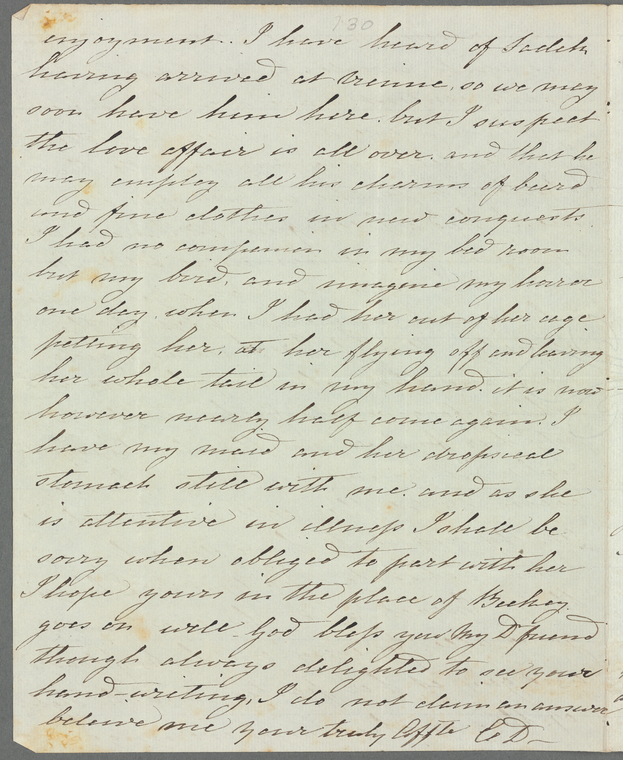 130
enjoyment. I have heard of Sadik
having arrived at Vienne, so we may
soon have him here. but I suspect
the love affair is all over. and that he
may employ all his charms of beard
and fine clothes in new conquests.
I had no companion in my bed room
but my bird, and imagine my horror
one day, when I had her out of her cage
petting her, at her flying off and leaving
her whole tail in my hand. it is now
however nearly half come again. I
have my maid and her dropsical
stomach still with me. and as she
is attentive in illness I shall be
sorry when obliged to part with her
I hope yours in the place of
goes on well. God bless you My Dr friend
though always delighted to see your
hand-writing, I do not claim an answer
beleive me your truly Affte E D—